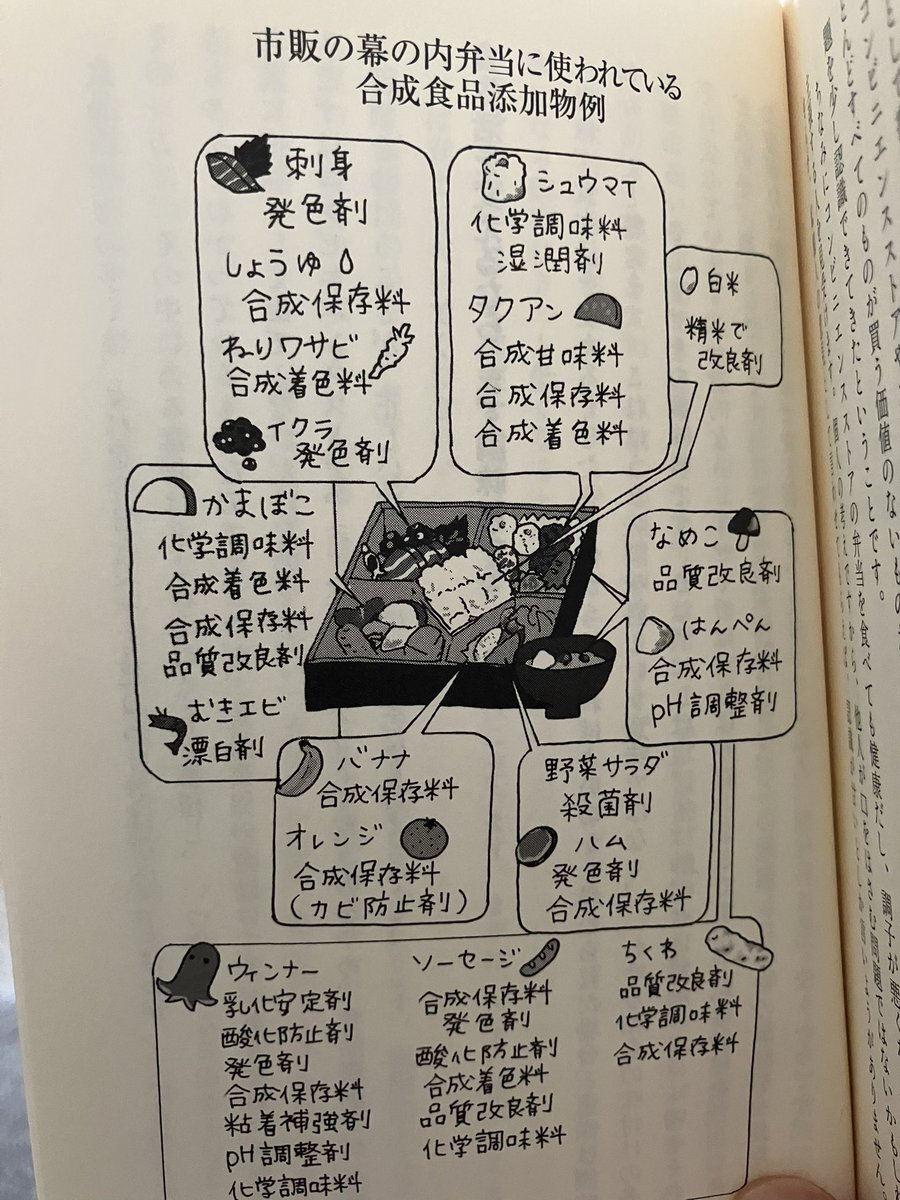 市販の幕の内弁当に使われている
合成食品添加物例
刺身
発色剤
しょうゆ
合成保存料
ねりワサビ
合成着色料
イクラ
発色剤
シュウマイ
化学調味料
湿潤剤
タクアン
合成甘味料
合成保存料
合成着色料
白米
精米で
改良剤
かまぼこ
化学調味料
合成着色料
合成保存料
品質改良剤
むきエビ
漂白剤
なめこ
品質改良剤
はんぺん
合成保存料
pH調整剤
バナナ
合成保存料
オレンジ
合成保存料
(カビ防止剤)
野菜サラダ
殺菌剤
ハム
発色剤
合成保存料
ウィンナー
乳化安定剤
酸化防止剤
発色剤
合成保存料
粘着補強剤
pH調整剤
化学調味料
ソーセージ
合成保存料
発色剤
酸化防止剤
合成着色料
品質改良剤
化学調味料
ちくわ
品質改良剤
化学調味料
合成保存料
コンビニエンスストア
とんどすべてのものが買う価値のないもの
を少し認識できてきたということです。
ちなみにコンビニエンスストアの弁当を食べても健康だし、調子が悪く